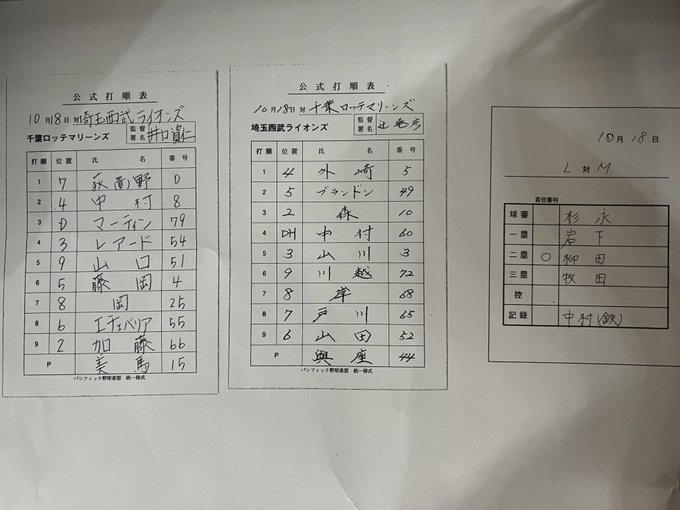 公式打順表
10月18日 対 埼玉西武ライオンズ
千葉ロッテマリーンズ 監督署名 井口資仁
打順 位置 氏名 番号
1 7 荻(貴)野 0
2 4 中村 8
3 D マーティン 79
4 3 レアード 54
5 9 山口 51
6 5 藤岡 4
7 8 岡 25
8 6 エチェバリア 55
9 2 加藤 66
P 美馬 15
パシフィック野球連盟 統一様式
公式打順表
10月18日 対 千葉ロッテマリーンズ
埼玉西武ライオンズ 監督署名 辻発彦
打順 位置 氏名 番号
1 4 外崎 5
2 5 ブランドン 49
3 2 森 10
4 DH 中村 60
5 3 山川 3
6 9 川越 72
7 8 岸 68
8 7 戸川 65
9 6 山田 52
P 與座 44
パシフィック野球連盟 統一様式
10月18日
L 対 M
責任審判
球審 杉永
一塁 岩下
二塁 ○ 柳田
三塁 牧田
控
記録 中村(鉄)